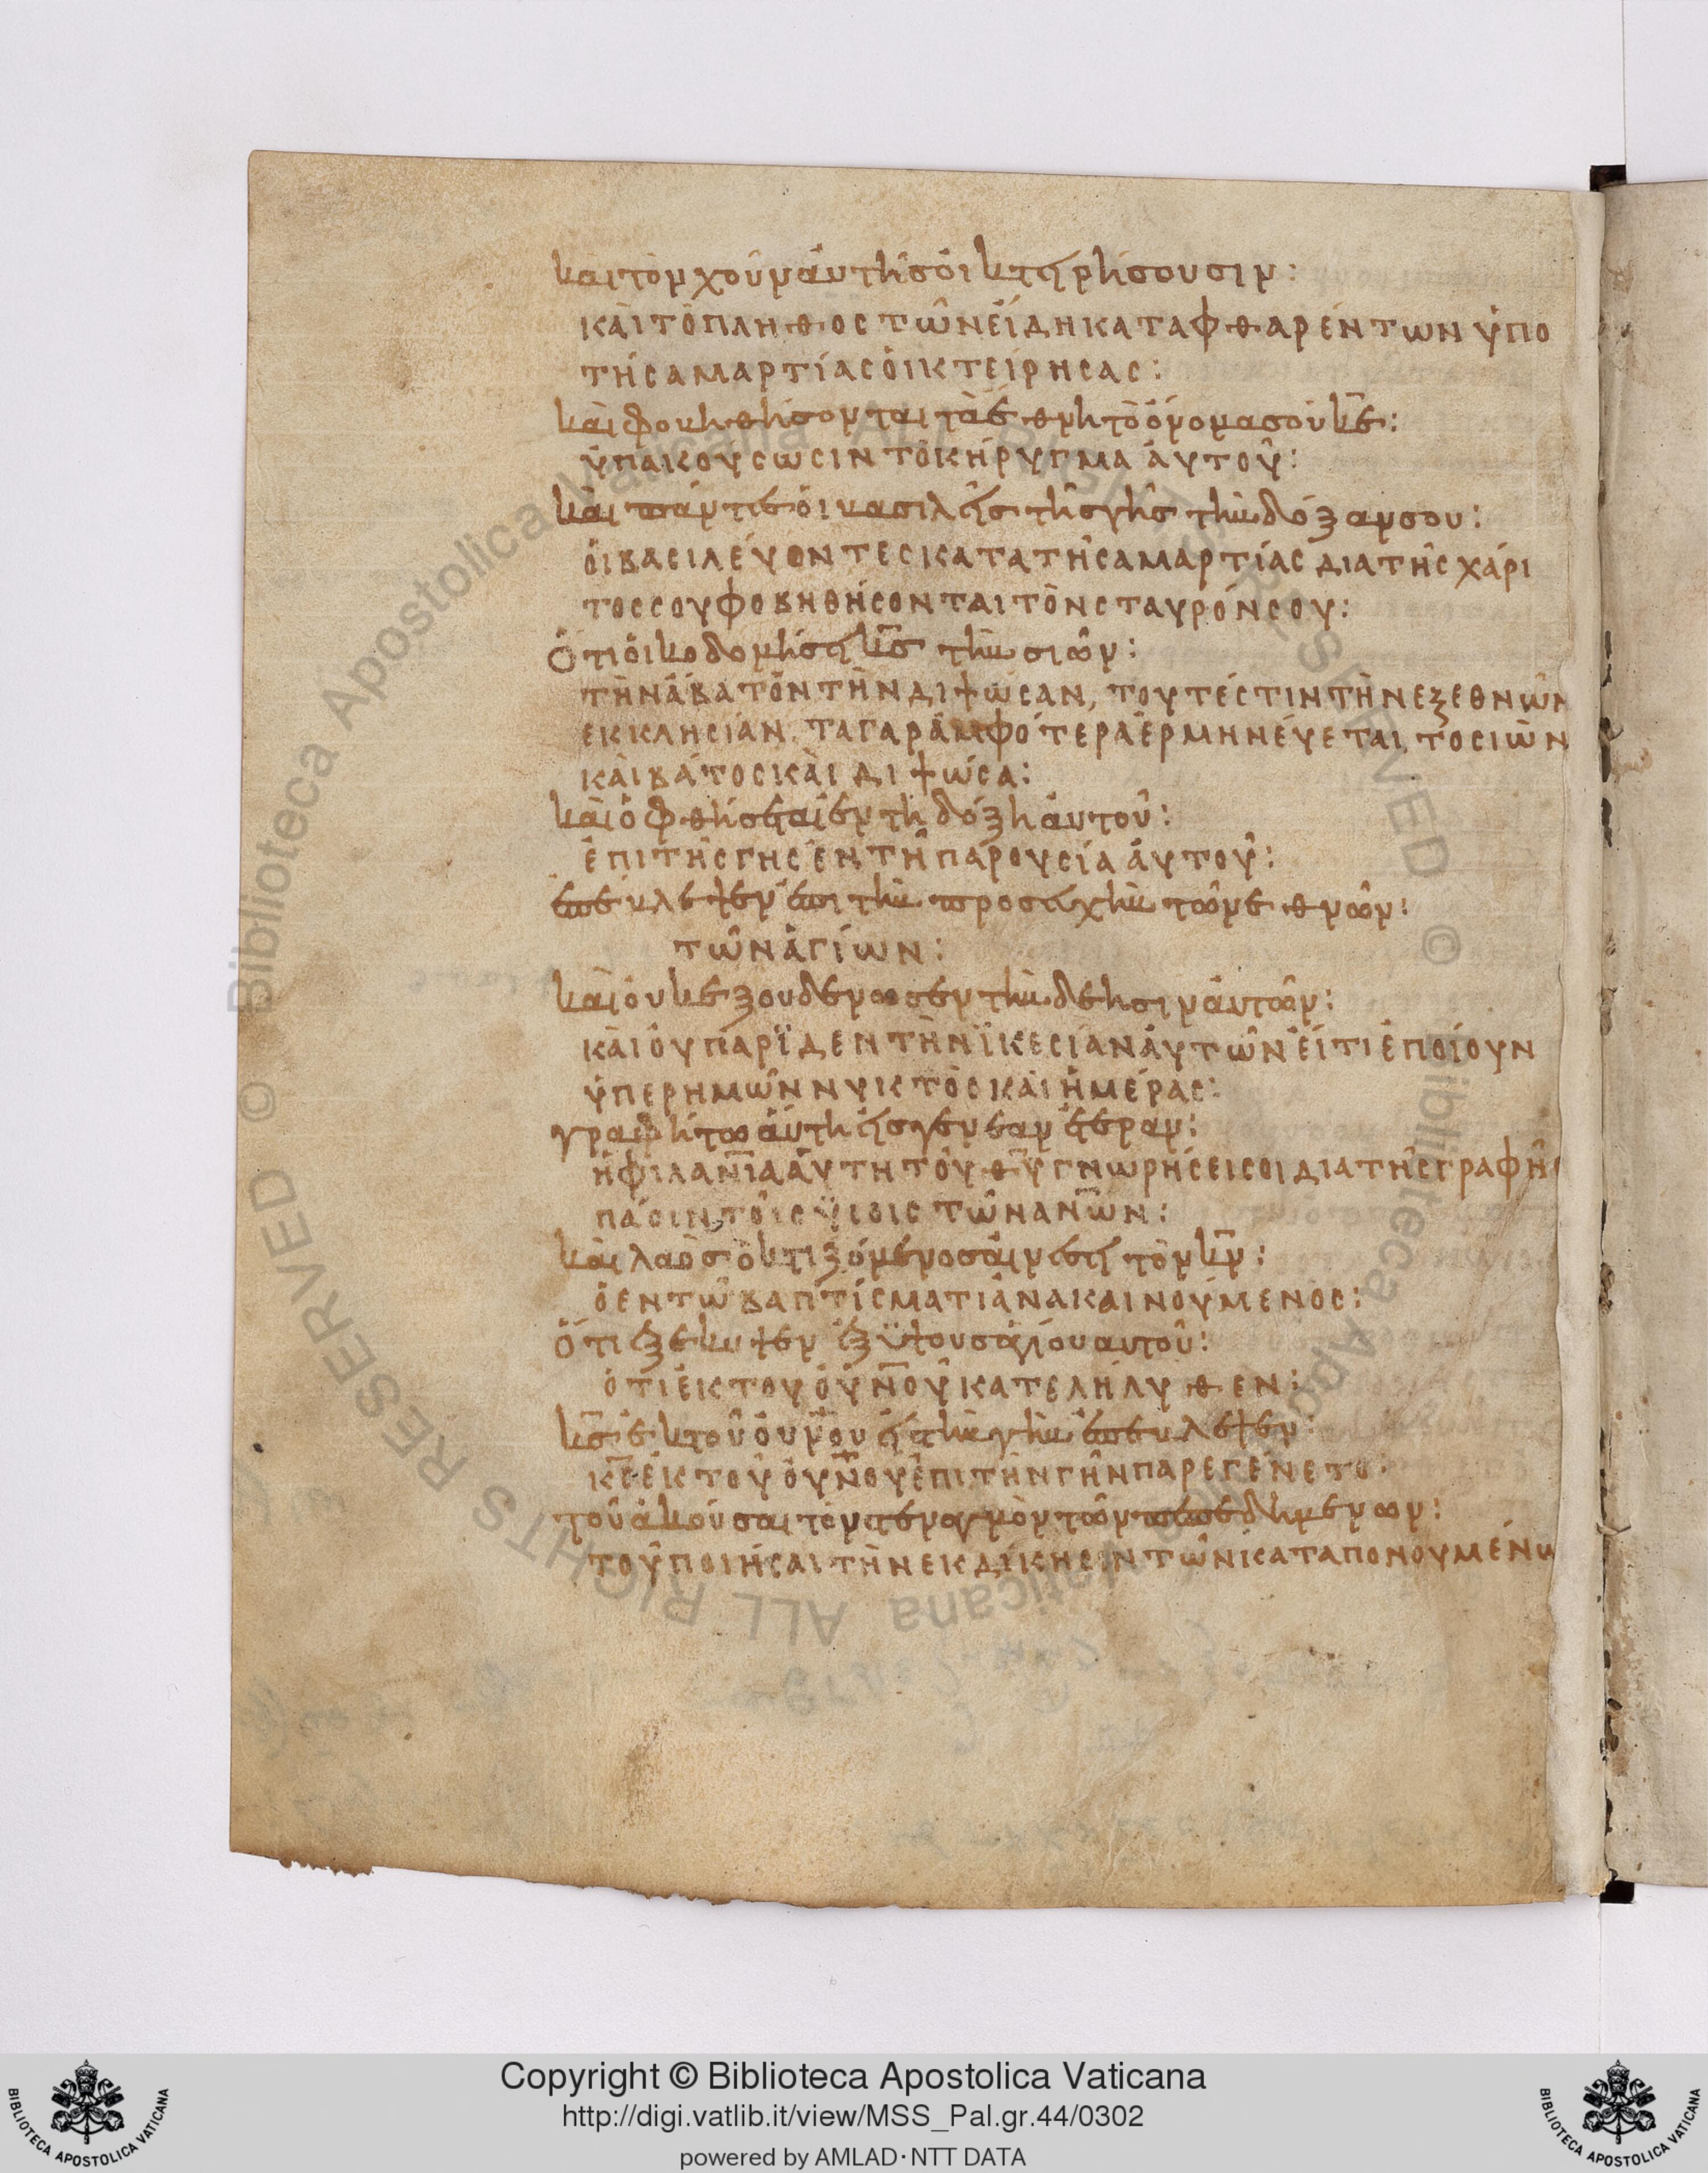 καὶ τὸν χοῦν ἀυτῆς ὀικτειρήσουσιν:
κὰι τὸ πλῆθος τῶν ἐίδη καταφθαρέντων ὑπο
τῆς αμαρτίας ὀικτειρησας:
κὰι φοβηθήσονται τὰ έθνη τὸ ὄνομα σού κ̅ε:
ὑπακούσωσιν τὸ κήρυγμα ἀυτοῦ:
κὰι πάντες ὁι βασιλεῖς τῆς γῆς τὴν δόξαν σου:
ὁι βασιλέυοντες κατα τῆς αμαρτίας δια τῆς χάρι
τος σου φοβηθήσονται τὸν σταυρόν σου:
Ὅτι ὀικοδομήσει κ̅ς τὴν σιῶν:
τὴν ἄβατον τὴν διψῶσαν, τουτέστιν τὴν εξ εθνῶν
εκκλησίαν. τα γαρ ἀμφότερα ἑρμηνέυεται, το σιὼν
κὰι βάτος κὰι διψῶσα:
κὰι ὀφθήσεται ἐν τῆ δόξη ἀυτοῦ:
ἐπι τῆς γης ἐν τῆ παρουσία ἀυτοῦ:
ἐπέβλεψεν ἐπι τὴν προσευχὴν τῶν εθνῶν:
τῶν ἁγίων:
κὰι ὀυκ εξουδένωσεν τὴν δέησιν ἀυτῶν:
κὰι ὀυ παρϊδεν τὴν ϊκεσίαν ἀυτῶν ἐίτι ἐποίουν
ὑπερ ημῶν νυκτὸς κὰι ἡμέρας:
γραφήτω ἁύτη εἰς γενεαν ἑτεραν:
ἡ φιλαν̅ια ἁύτη τοῦ θ̅υ γνωρήσει σοι δια τῆς γραφῆς
πάσιν τοῖς ϋιοις τῶν αν̅ων:
κὰι λαὸς ὁ κτιζόμενος ἀινέσει τὸν κ̅ν:
ὁ εν τῶ βαπτίσματι ἀνακαινούμενος:
Ὅτι ἐξέκυψεν ἐξ ϋψους ἁγίου αυτοῦ:
ὁτι ἐκ του ὀυν̅ου κατελήλυθεν:
κ̅ς ἐκ τοῦ ὀυν̅ου ἐι τὴν γὴν ἐπέβλεψεν:
κ̅ς ἐκ τοῦ ὀυν̅ου ἐπι τὴν γῆν παρεγένετο:
τοῦ ἀκούσαι τὸν στεναγμὸν τῶν πεπεδημένων:
τοῦ ποιῆσαι τὴν εκδίκησειν τῶν καταπονουμένω
Copyright © Biblioteca Apostolica Vaticana
http://digi.vatlib.it/view/MSS_Pal.gr.44/0302
powered by AMLAD·NTT DATA
BIBLIOTECA APOSTOLICA VATICANA
BIBLIOTECA APOSTOLICA VATICANA
Biblioteca Apostolica Vaticana ALL RIGHTS RESERVED ©
Biblioteca Apostolica Vaticana ALL RIGHTS RESERVED ©